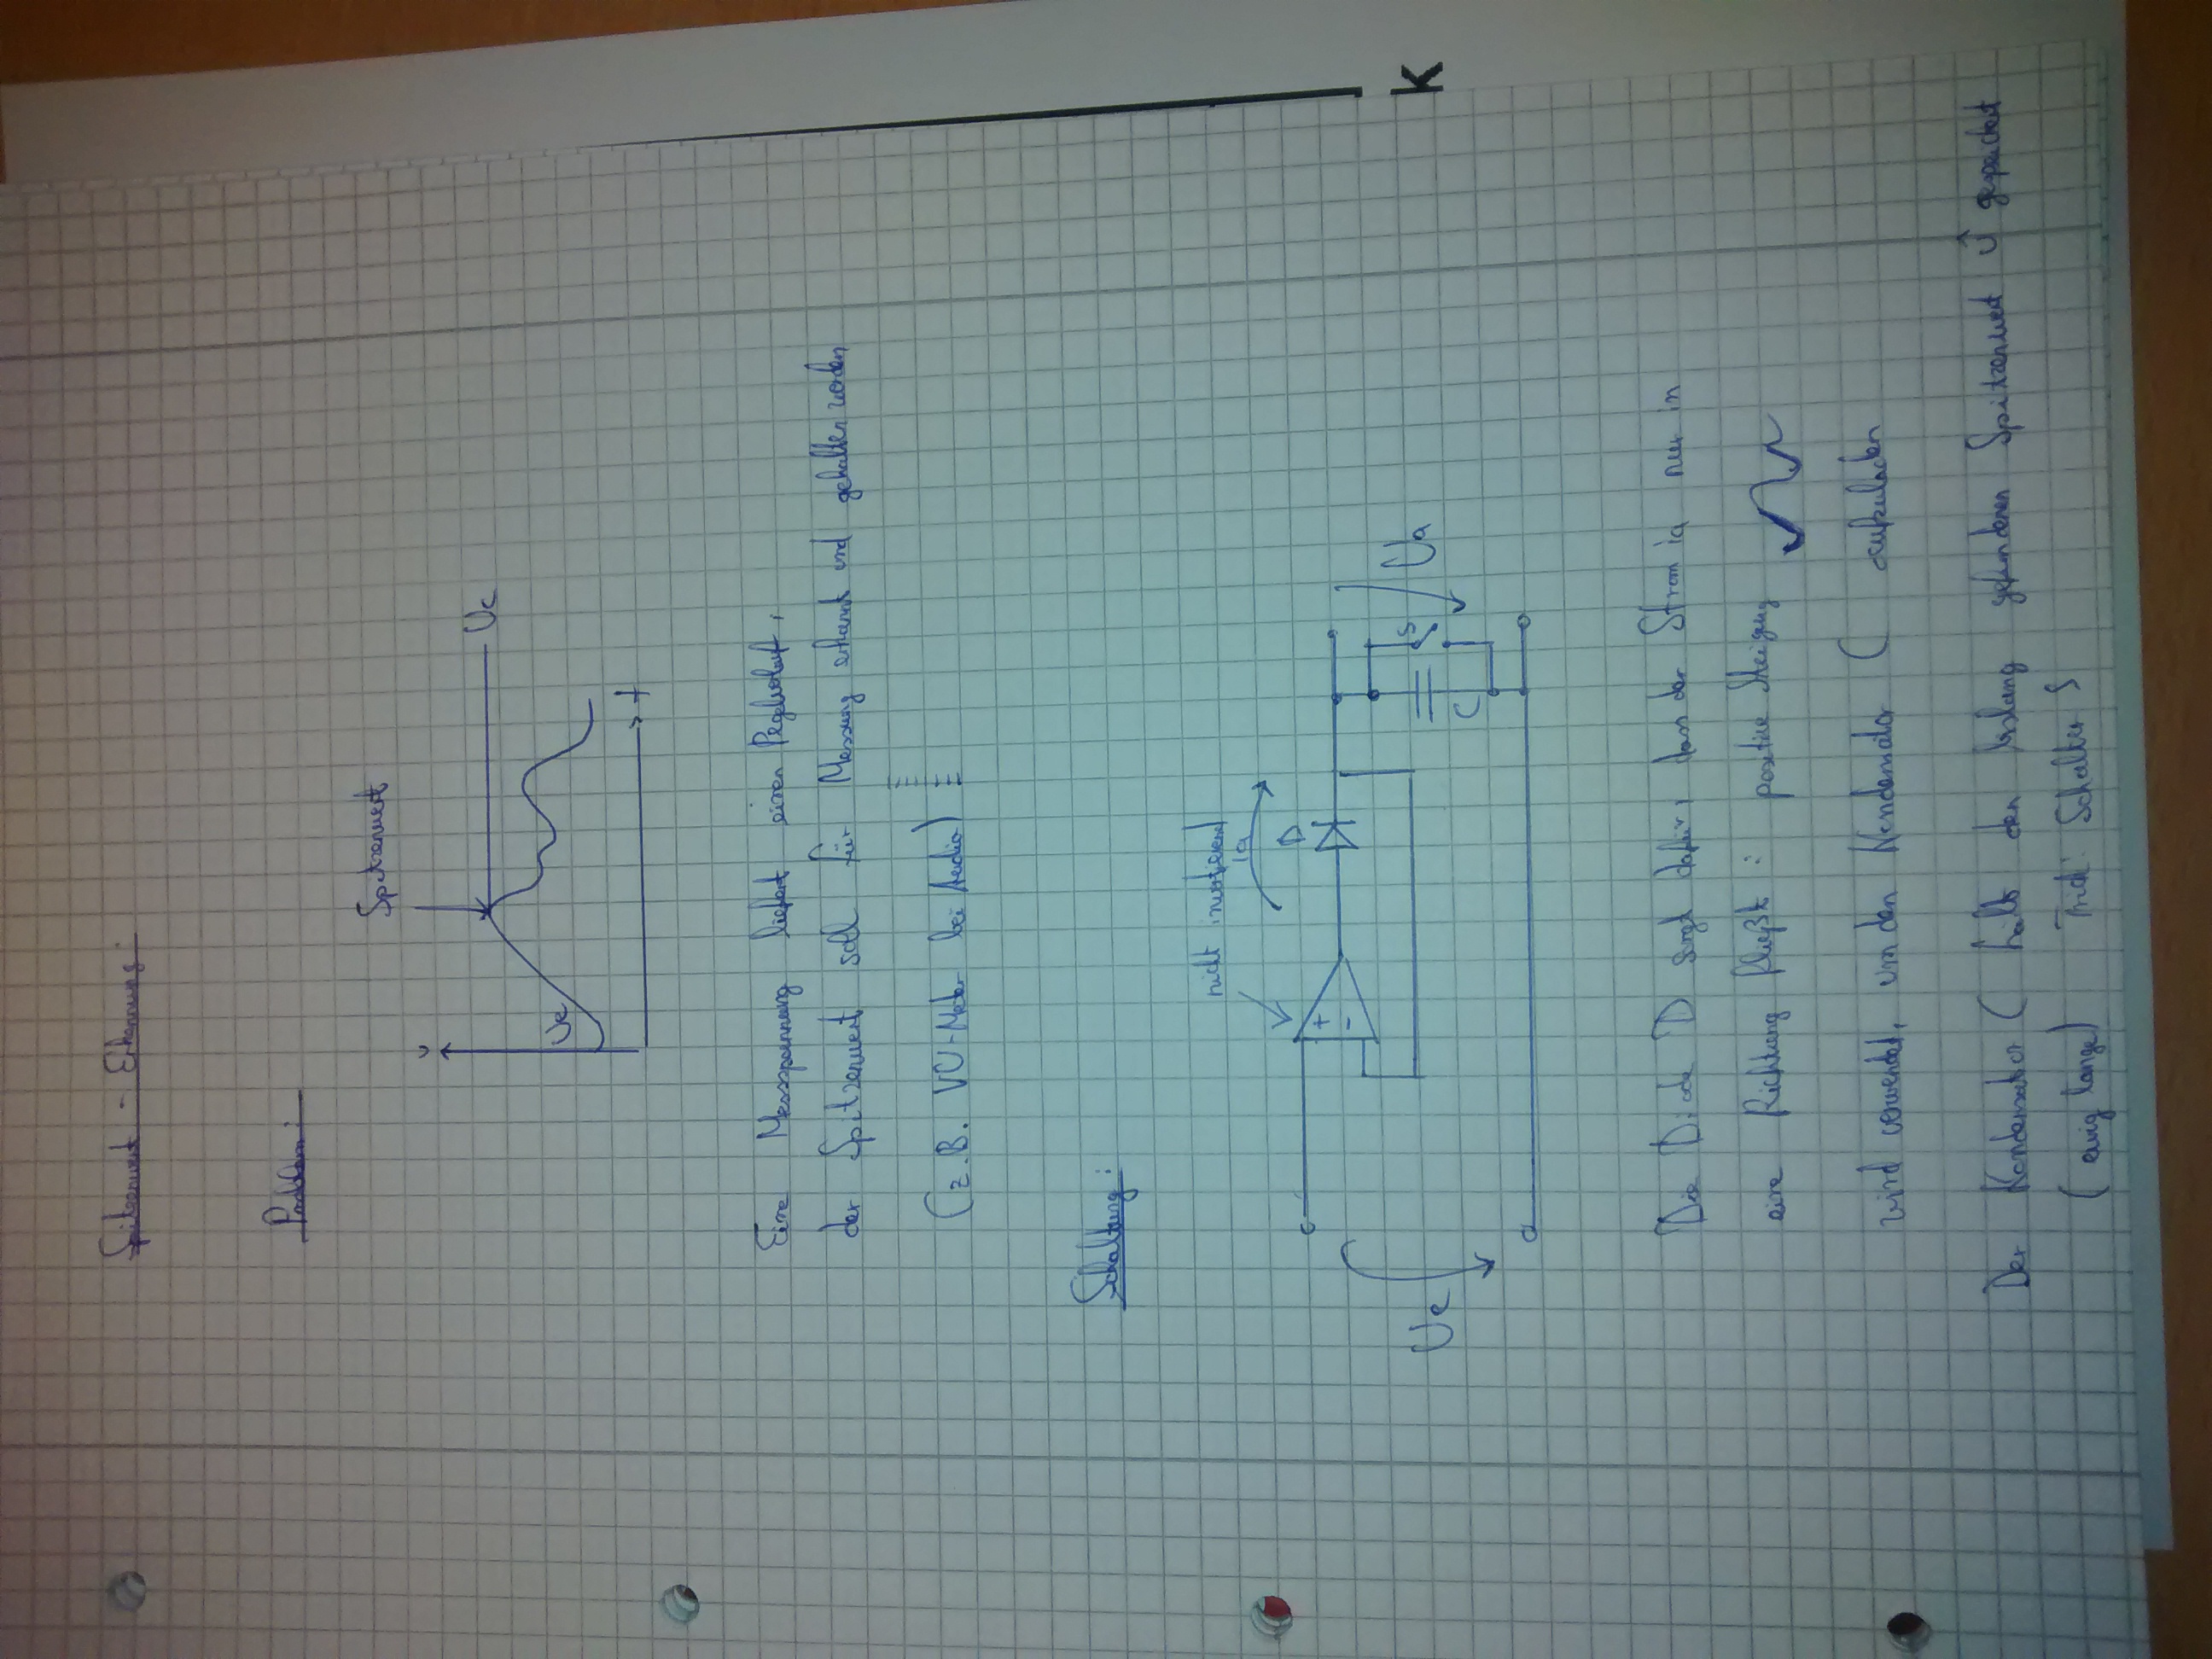 Spitzenwert - Erkennung:
Problem:
Spitzenwert
U
Ue
Uc
t
Eine Messspannung liefert einen Pegelverlauf,
der Spitzenwert soll für Messung erkannt und gehalten werden
(z.B. VU-Meter bei Audio)
Schaltung:
nicht invertierend
Ia
D
+
-
S
C
Ue
Ua
Die Diode D sorgt dafür, dass der Strom Ia nur in
eine Richtung fließt : positive Steigung
wird verwendet, um den Kondensator C aufzuladen
Der Kondensator C hält den bislang gefundenen Spitzenwert Û gespeichert
(ewig lange) Trick: Schalter S
K